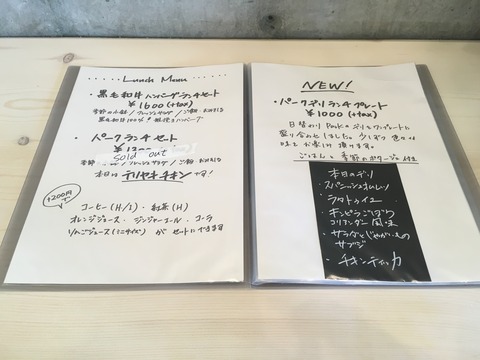 Lunch Menu
・黒毛和牛ハンバーグランチセート
¥1600(+tax)
黒毛和牛100%!
・パークランチセット
Sold out
本日はテリヤキチキンです!
+200円で
コーヒー(H/I)・紅茶(H/I)
オレンジジュース・ジンジャーエール・コーラ
りんごジュース(ミニサイズ)がセットにできます
NEW!
・パークデリランチプレート
¥1000(+tax)
日替わりParkのデリをワンプレートに
盛り合わせしました。少しずつ色々な
味をお楽しみ頂けます。
ごはんと季節のポタージュ付
本日のデリ
・スパニッシュオムレツ
・ラタトゥイユ
・キンピラごぼう
コリアンダー風味
・サラダとじゃがいもの
サブジ
・チキンティッカ